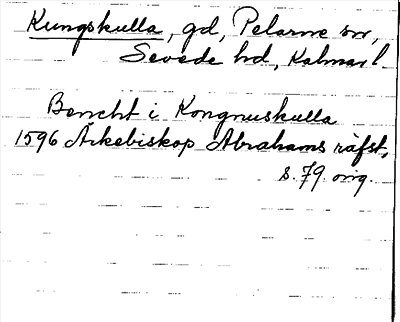 Kungskulla, gd, Pelarne sn,
Sevede hd, Kalmar l.
Bencht i Kongnuskulla
1596 Ärkebiskop Abrahams räfst,
s. 79. orig.